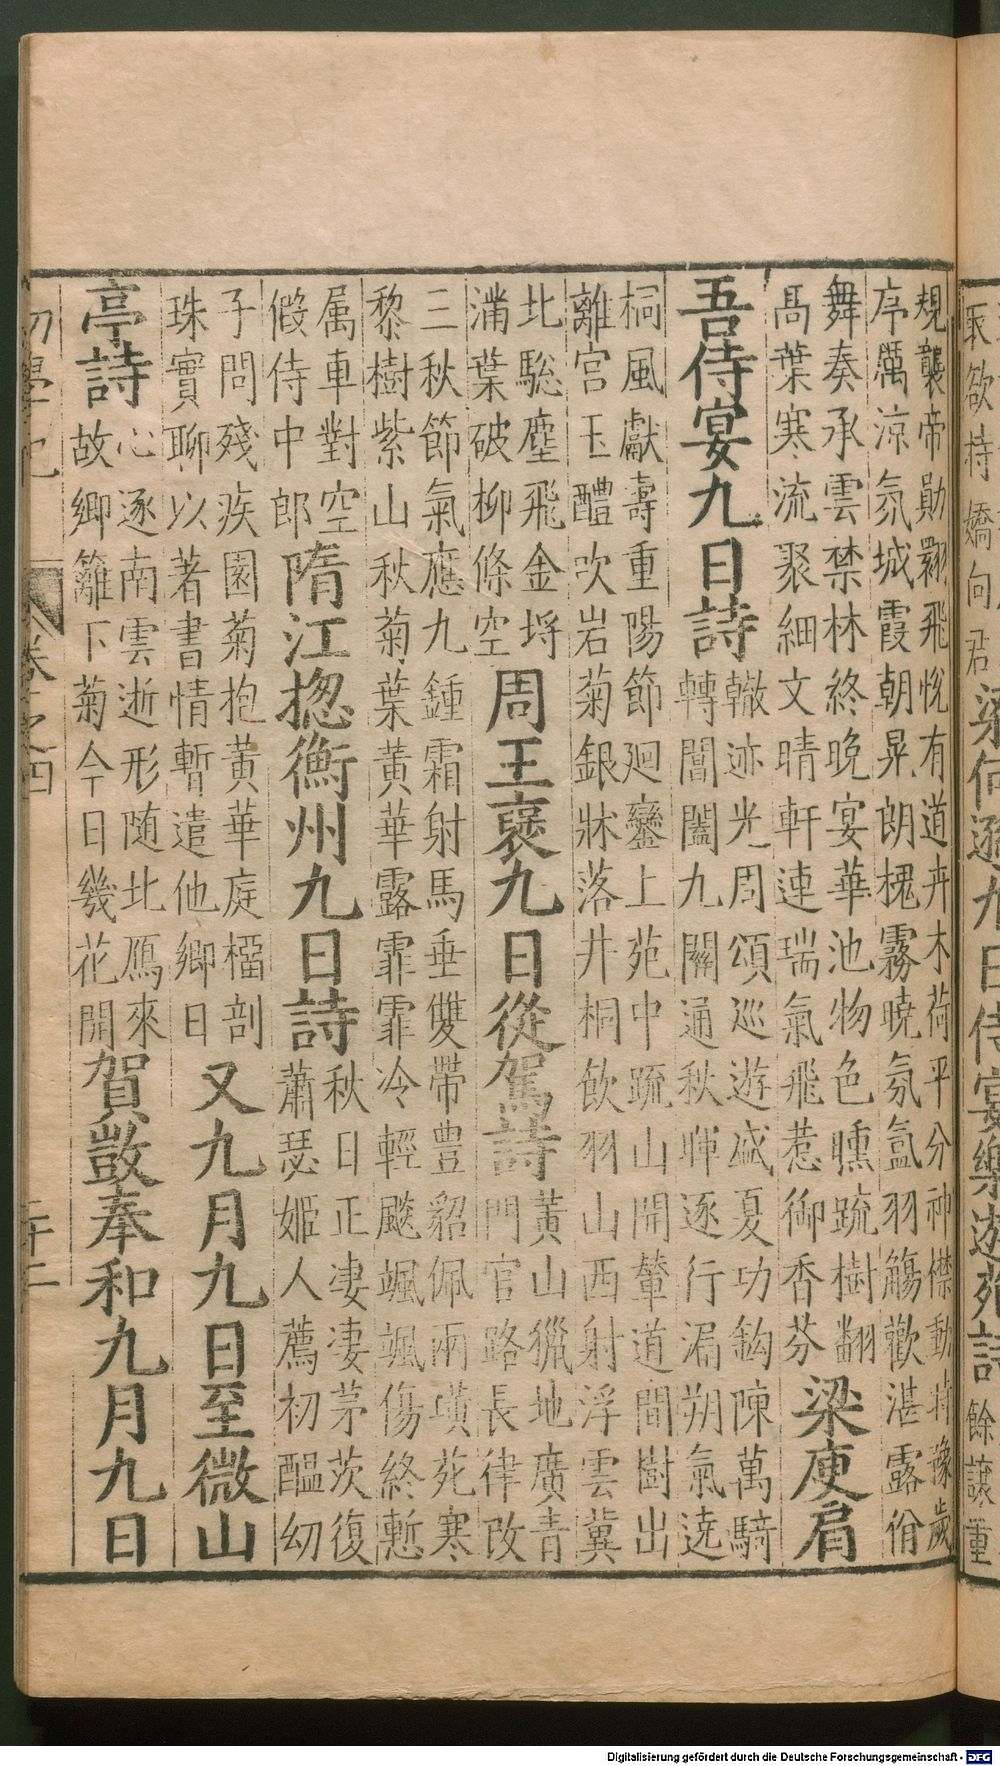 取欲持嬌向君
梁何遜九日侍宴樂遊苑詩
餘
重
規襲帝勛翾飛悅有道卉木荷平分神襟動時豫歲
序屬涼氛城霞朝晃朗槐霧曉氛氳羽觴歡湛露佾
舞奏承雲禁林終晚宴華池物色曛疏樹翻
高葉寒流聚細文晴軒連瑞氣飛惹御香芬
梁庾肩
吾侍宴九日詩
轍迹光周頌巡遊盛夏功鈎陳萬騎
轉閶闔九關通秋暉逐行漏朔氣遶
桐風獻壽重陽節廻鑾上苑中疏山開輦道間樹出
離宮玉醴吹岩菊銀牀落井桐飲羽山西射浮雲冀
北驄塵飛金埒
滿葉破柳條空
周王襃九日從駕詩
黃山獵地廣青
門官路長律改
三秋節氣應九鍾霜射馬垂雙帶豊貂佩兩璜苑寒
黎樹紫山秋菊葉黃華露霏霏冷輕飈颯颯傷終慙
属車對空
假侍中郎
隋江揔衡州九日詩
秋日正凄凄茅茨復
蕭瑟姬人薦初醞幼
子問殘疾園菊抱黃華庭榴剖
珠實聊以著書情暫遣他鄉日
又九月九日至微山
亭詩
心逐南雲逝形随北鴈來
故鄉籬下菊今日幾花開
賀敳奉和九月九日
初學記
卷之四
Digitalisierung gefördert durch die Deutsche Forschungsgemeinschaft - DFG